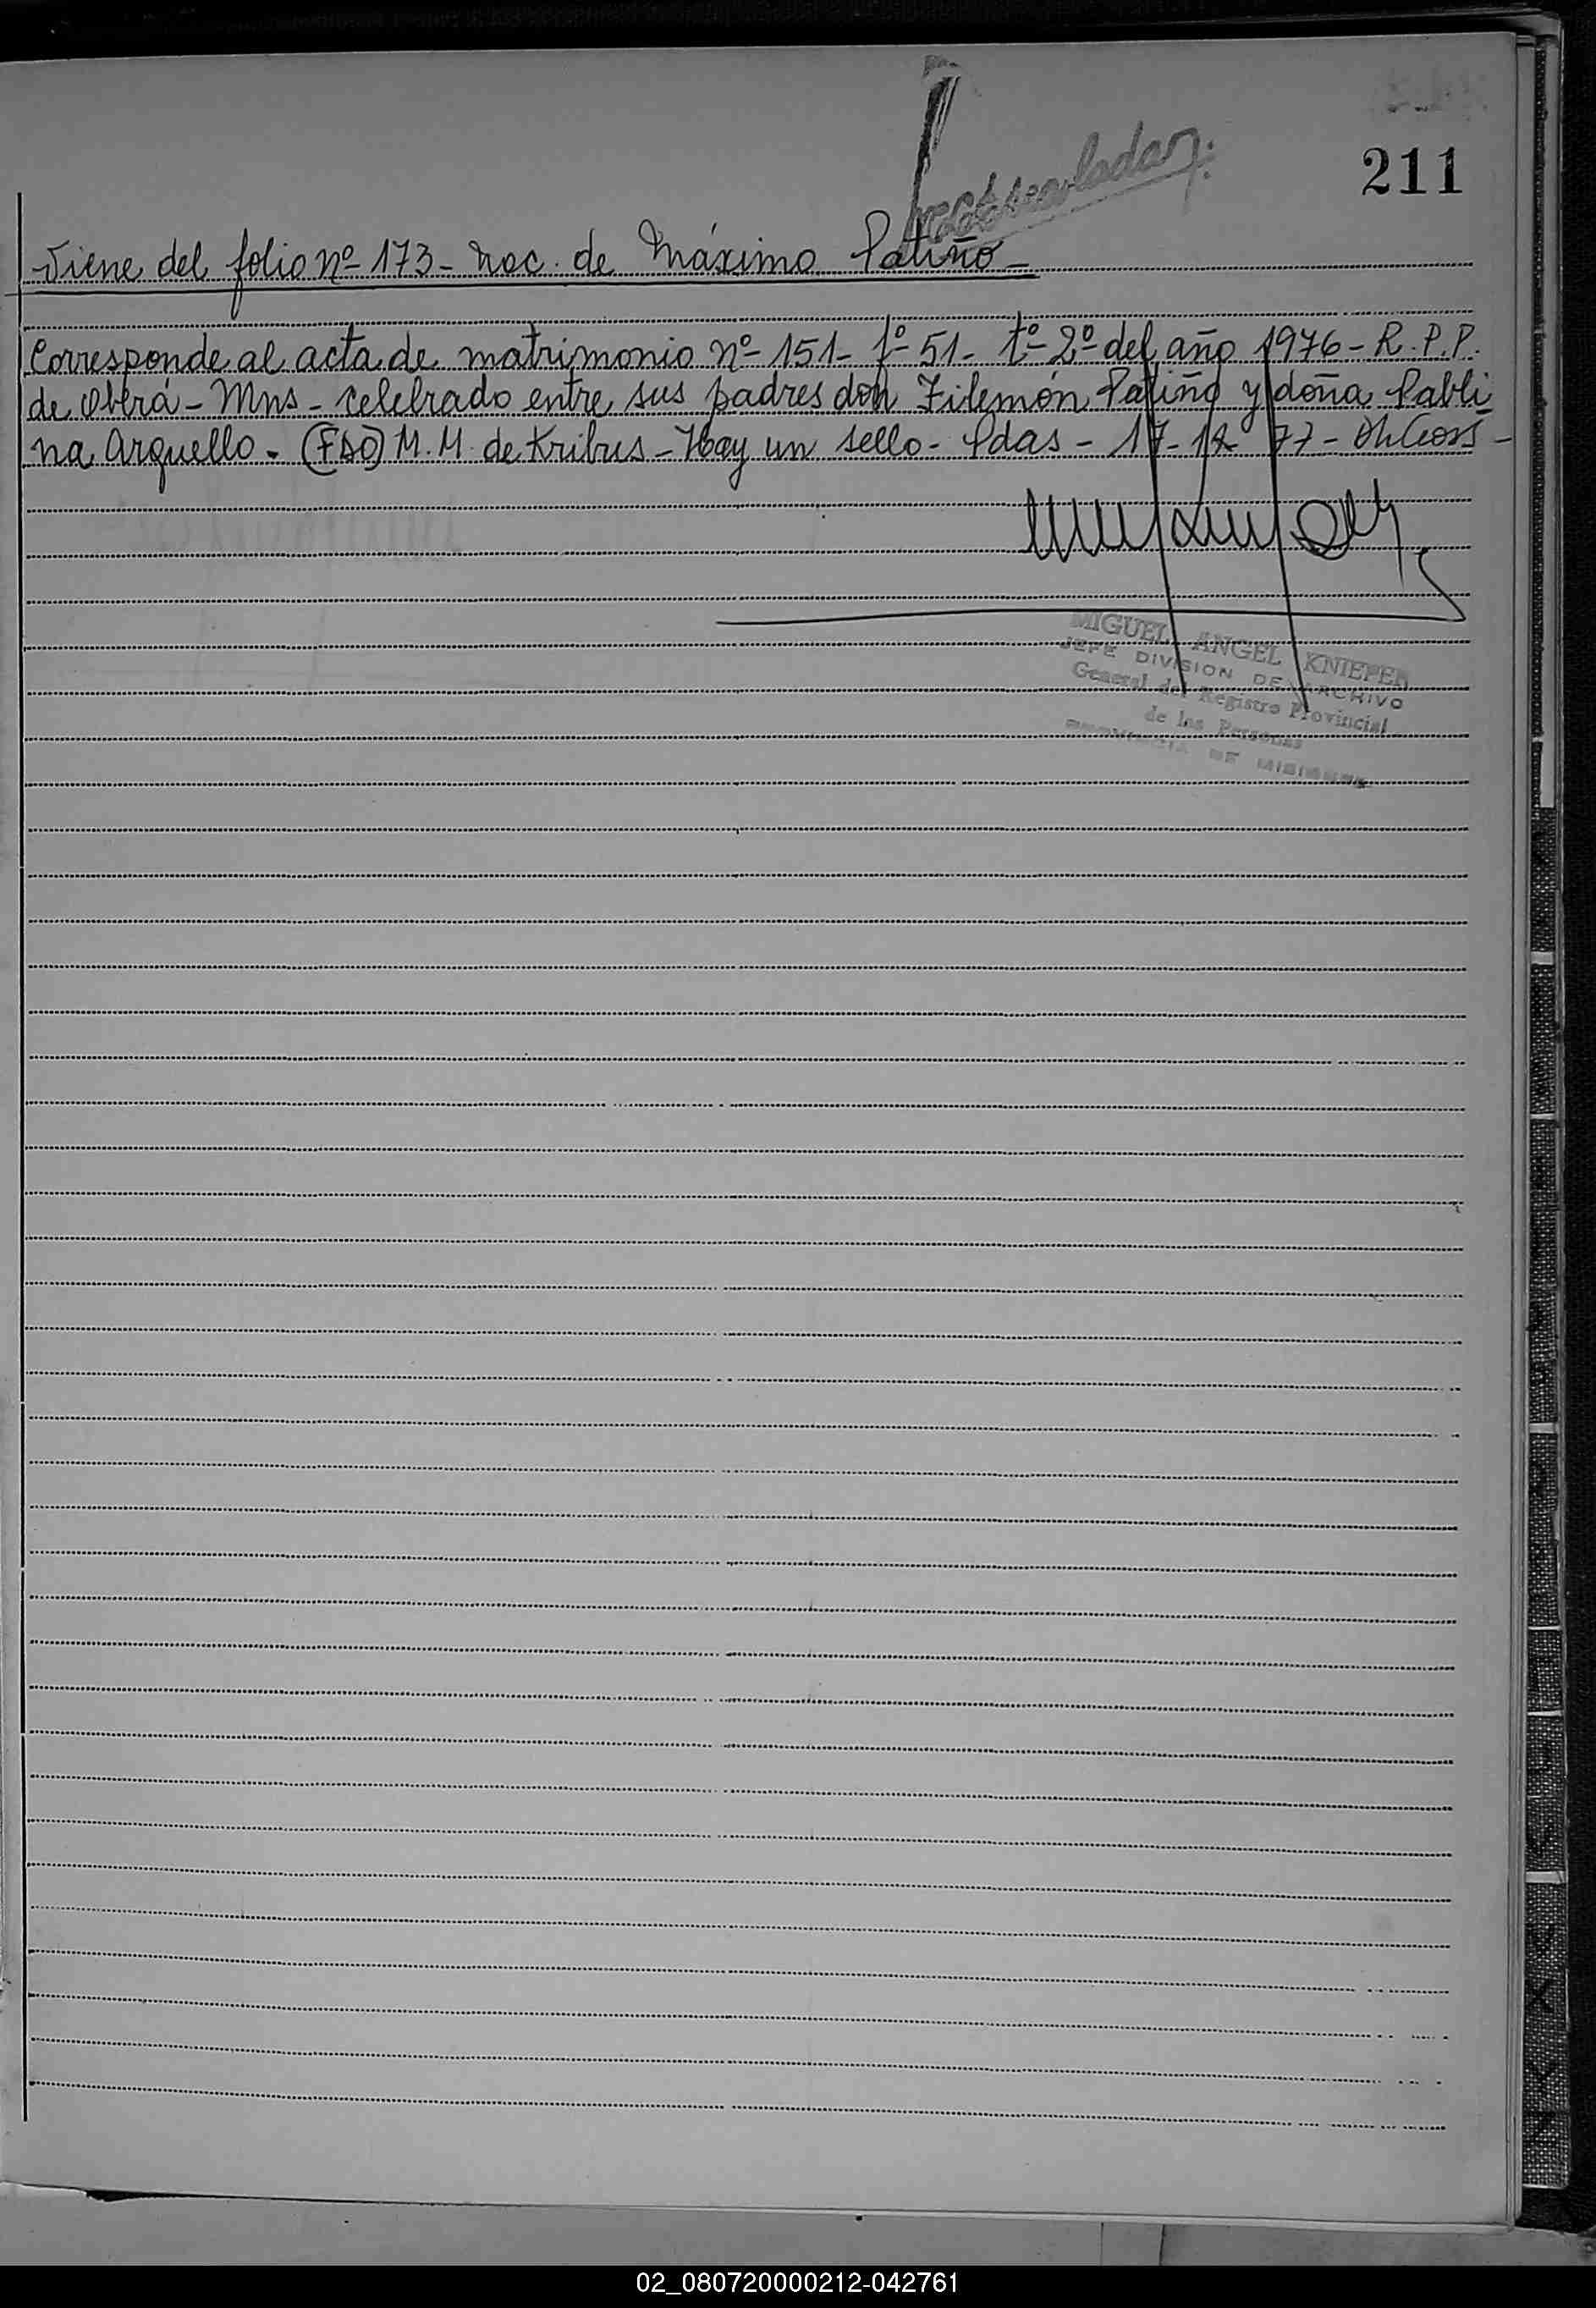 211
Viene del folio nº 173 - Nac. de Máximo Patiño -
Corresponde al acta de matrimonio nº 151 - fº 51 - tº 2º del año 1976 - R.P.P.
de Oberá - Mns - celebrado entre sus padres don Filemón Patiño y doña Pabli
na Arguello. (FDO) M. M. de Kribus - Hay un sello - Pdas - 17-12-77 -
MIGUEL ANGEL KNIEPER
JEFE DIVISION DE ARCHIVO
General del Registro Provincial
de las Personas
PROVINCIA DE MISIONES
02_080720000212-042761